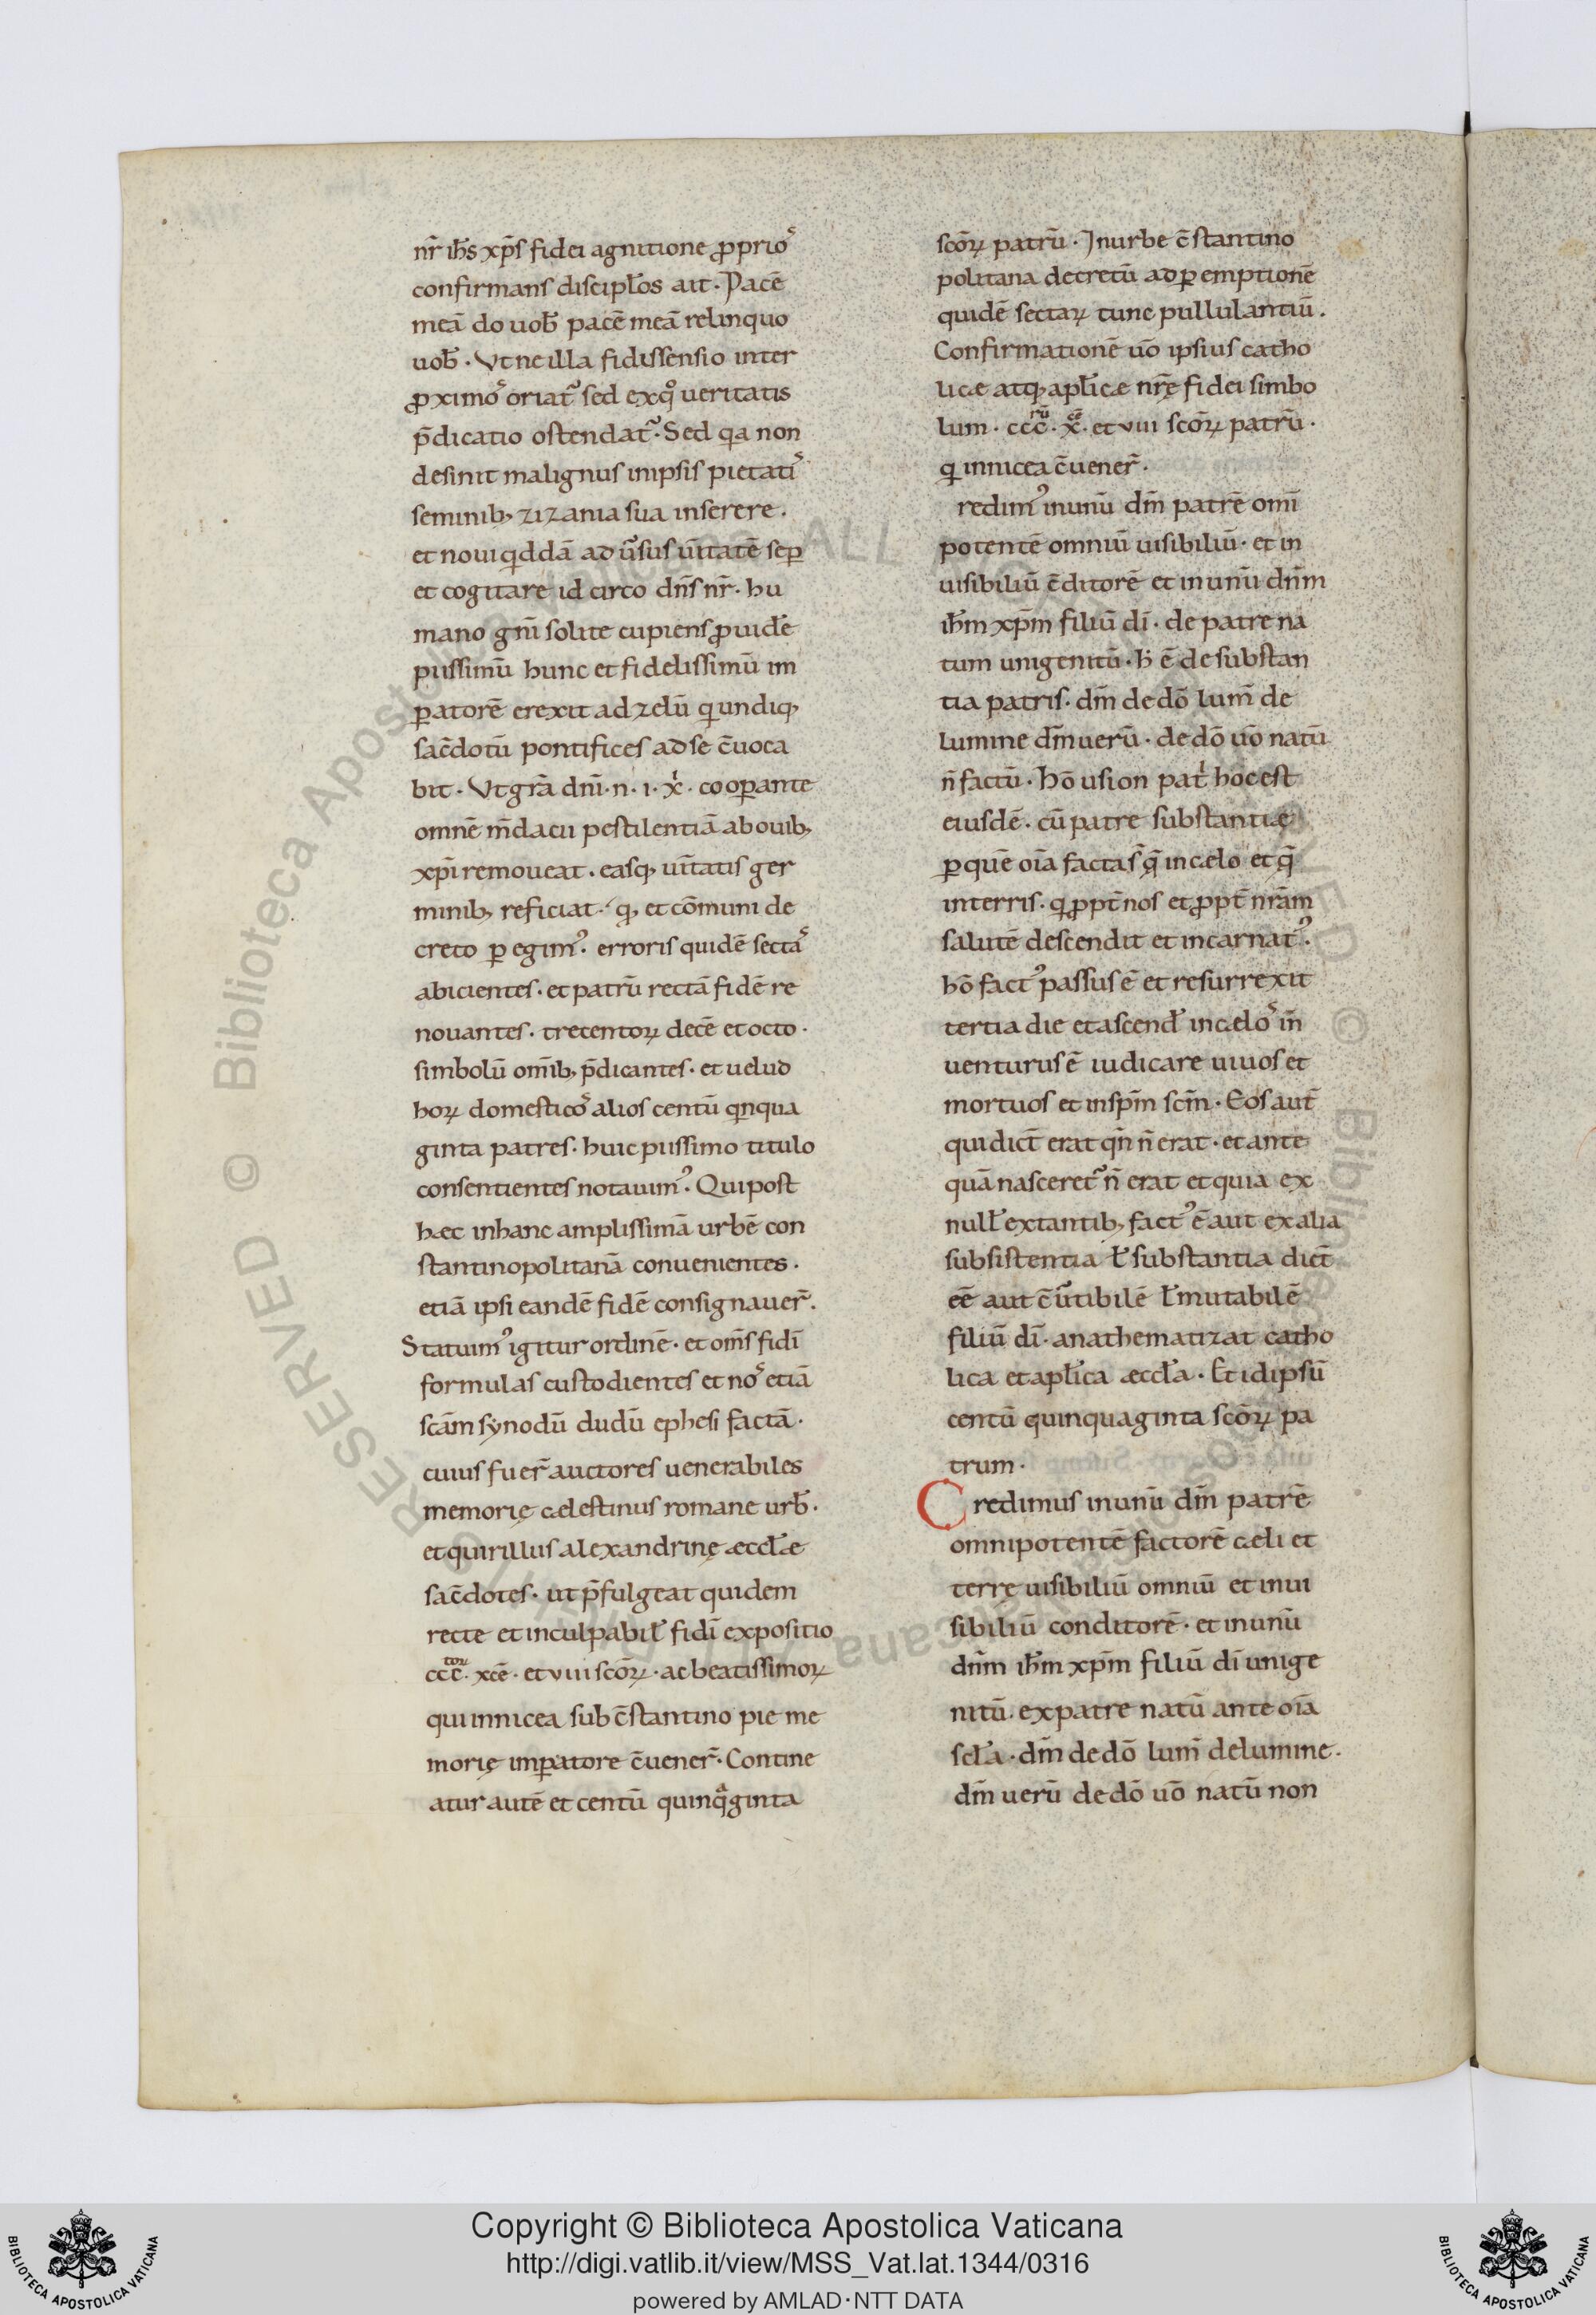 nr̄ ih̄s xp̄s fidei agnitione ꝓprioˢ
confirmans discipl̄os ait · Pacē
meā do uob̄ pacē meā relinquo
uob̄ · Vt ne illa fi dissensio inter
ꝓximoˢ oriat᷑ sed ex q̊ ueritatis
p̄dicatio ostendat᷑ · Sed qa non
desinit malignus in ipsis pietatiˢ
seminib; zizania sua inserere .
et noui qiddā aduersus ūitatē sēp
et cogitare id circo dn̄s nr̄ · hu
mano gn̄i solite cupiens ꝓuidē
piissimū hunc et fidelissimū im
ꝑatorē erexit ad zelū qi undiq;
sac̄dotū pontifices ad se c̄uoca
bit · Vt gr̄a dn̄i · n · i · x̄ · cooꝑante
omnē m̄dacii pestilentiā ab ouib;
xp̄i remoueat . easq; uītatis ger
minib; reficiat · q; et cōmuni de
creto ꝑegimꝰ · erroris quidē sectaˢ
abicientes · et patrū rectā fidē re
nouantes · trecentoꝝ decē et octo ·
simbolū om̄ib; p̄dicantes · et uelud
hoꝝ domesticoˢ alios centū qinqua
ginta patres · huic piissimo titulo
consentientes notauimꝰ · Qui post
hæc in hanc amplissimā urbē con
stantinopolitanā conuenientes ·
etiā ipsi eandē fidē consignauer̄ .
Statuimꝰ igitur ordinē · et om̄s fidī
formulas custodientes et noˢ etiā
scām synodū dudū ephesi factā ·
cuius fuer̄ auctores uenerabiles
memorię cælestinus romane urb̄ ·
et quirillus alexandrinę æccl̄æ
sac̄dotes · ut p̄fulgeat quidem
recte et inculpabil̄ fidī expositio
ccc̄ toꝝ · xcē · et viii scōꝝ · ac beatissimoꝝ
qui in nicea sub c̄stantino pie me
morię imꝑatore c̄uener̄ · Contine
atur autē et centū quinqᵃginta
scōꝝ patrū · In urbe c̄stantino
politana decretū ad ꝑemptionē
quidē sectaꝝ tunc pullulantiū .
Confirmationē uō ipsius catho
licæ atq; apl̄icæ nr̄ę fidei simbo
lum · ccc̄ rū · x̄ cē · et viii scōꝝ patrū ·
qi in nicea c̄uener̄ .
redimꝰ in unū dm̄ patrē omī
potentē omniū uisibiliū · et in
uisibiliū c̄ditorē et in unū dn̄m
ih̄m xp̄m filiū dī · de patre na
tum unigenitū · h̄ ē de substan
tia patris · dm̄ de dō lum̄ de
lumine dm̄ uerū · de dō uō natū
n̄ factū · Hō usion patⁱ hoc est
eiusdē · cū patre substantiæ
ꝑ quē oīa facta s̄ q̄ in cælo et q̄
in terris · qi ꝓpt̄ nos et ꝓpt̄ nr̄am
salutē descendit et incarnatꝰ ·
hō factꝰ passus ē et resurrexit
tertia die et ascend̄ in cæloˢ in̄
uenturus ē iudicare uiuos et
mortuos et in spm̄ scm̄ · Eos aut̄
qui dict̄ erat qn̄ n̄ erat · et ante
quā nasceret᷑ n̄ erat et quia ex
null̄ extantib; factꝰ ē aut ex alia
subsistentia l̄ substantia dict̄
eē aut c̄ūtibilē l̄ mutabilē
filiū dī · anathematizat catho
lica et apl̄ica æccl̄a · Et id ipsū
centū quinquaginta scōꝝ pa
trum ·
Credimus in unū dm̄ patrē
omnipotentē factorē cæli et
terrę uisibiliū omniū et inui
sibiliū conditorē · et in unū
dn̄m ih̄m xp̄m filiū dī unige
nitū · ex patre natū ante oīa
scl̄a · dm̄ de dō lum̄ de lumine ·
dm̄ uerū de dō uō natū non
Copyright © Biblioteca Apostolica Vaticana
http://digi.vatlib.it/view/MSS_Vat.lat.1344/0316
powered by AMLAD·NTT DATA